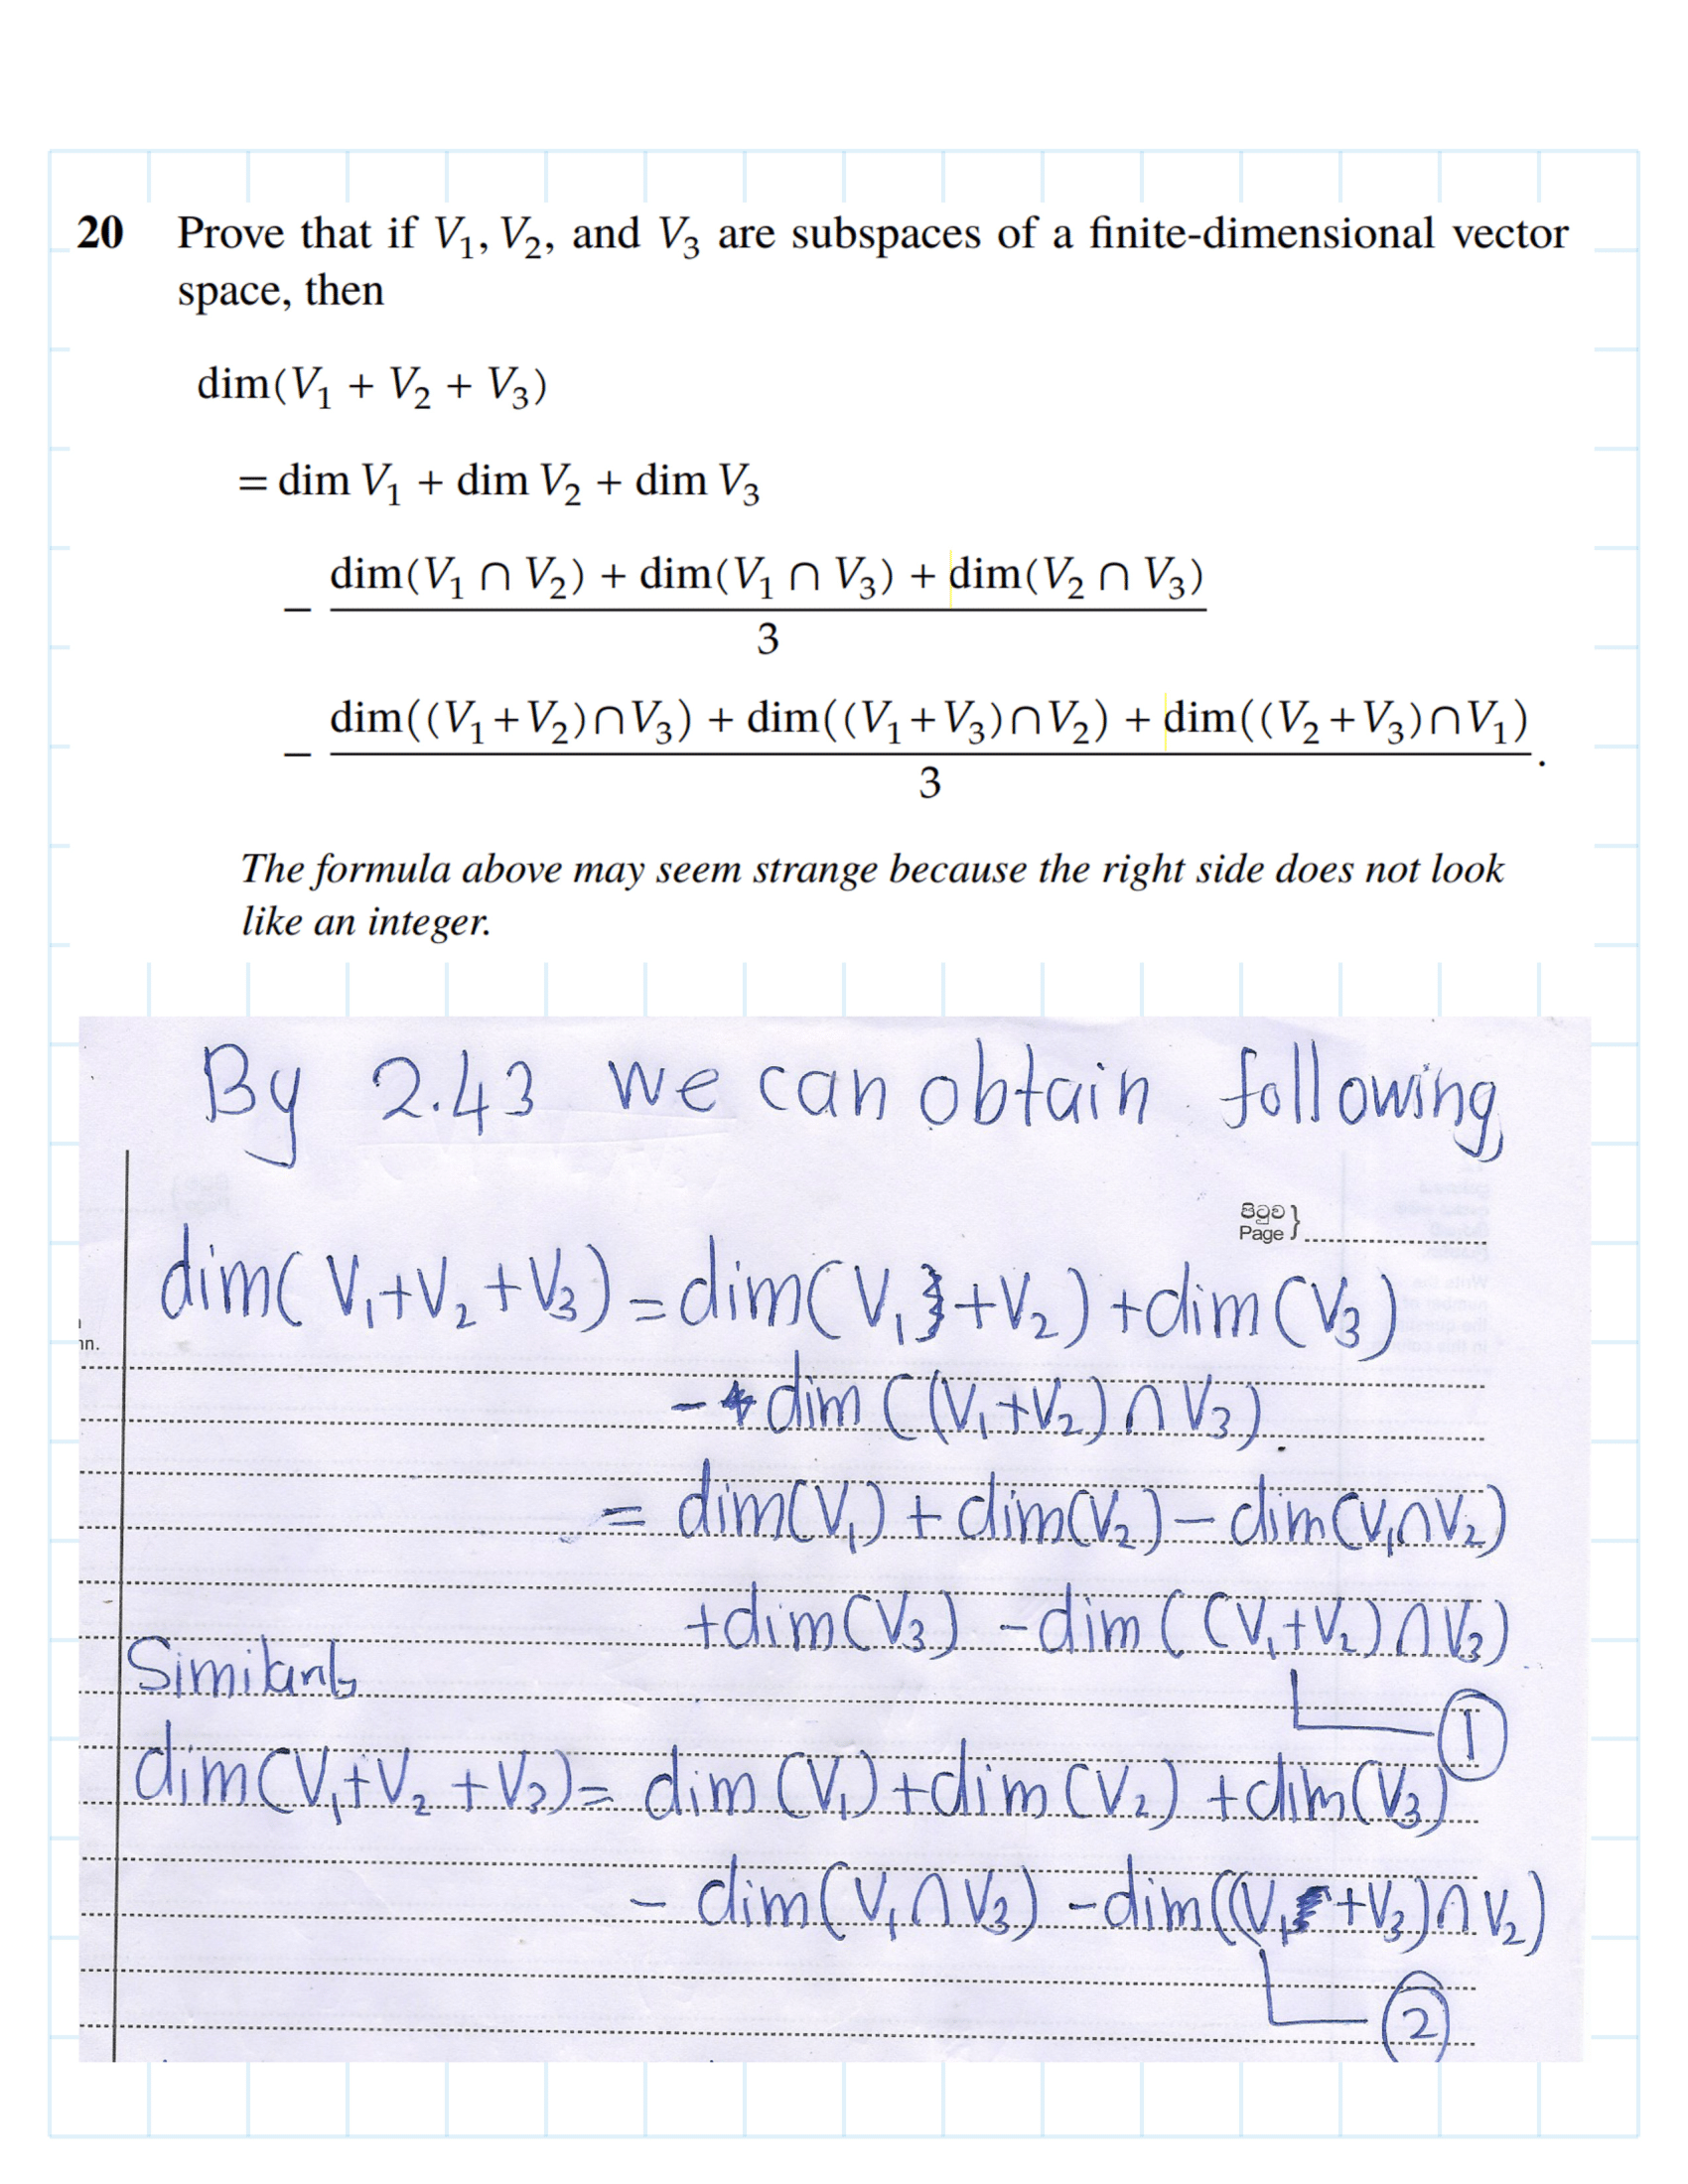 20 Prove that if V₁, V₂, and V₃ are subspaces of a finite-dimensional vector
space, then
dim(V₁ + V₂ + V₃)
= dim V₁ + dim V₂ + dim V₃
− (dim(V₁ ∩ V₂) + dim(V₁ ∩ V₃) + dim(V₂ ∩ V₃)) / 3
− (dim((V₁+V₂)∩V₃) + dim((V₁+V₃)∩V₂) + dim((V₂+V₃)∩V₁)) / 3.
The formula above may seem strange because the right side does not look
like an integer.
By 2.43 we can obtain following
පිටුව
Page }
dim(V₁+V₂+V₃) = dim(V₁+V₂) + dim(V₃)
nn.
− dim((V₁+V₂)∩V₃).
= dim(V₁) + dim(V₂) − dim(V₁∩V₂)
+dim(V₃) − dim((V₁+V₂)∩V₃)
Similarly
①
dim(V₁+V₂+V₃) = dim(V₁) + dim(V₂) + dim(V₃)
− dim(V₁∩V₃) − dim((V₁+V₃)∩V₂)
②